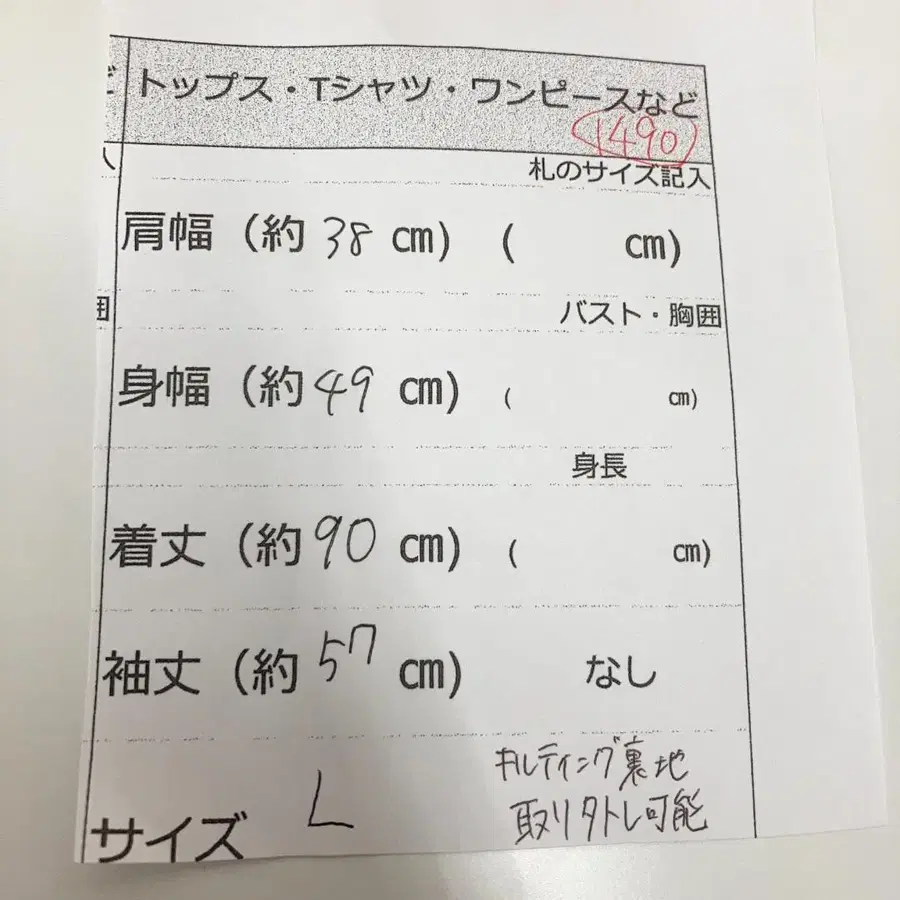 トップス・Tシャツ・ワンピースなど
1490
札のサイズ記入
肩幅（約 38 cm）（ cm）
バスト・胸囲
囲
身幅（約 49 cm）（ cm）
身長
着丈（約 90 cm）（ cm）
袖丈（約 57 cm） なし
キルティング裏地
取り外し可能
サイズ L